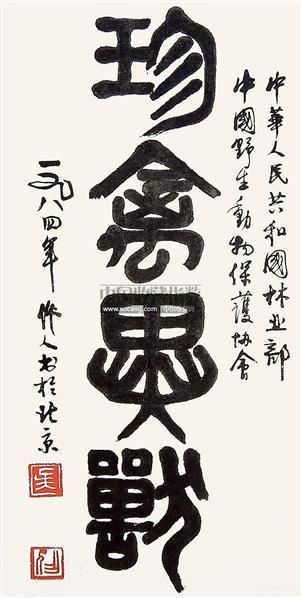 中華人民共和國林业部
中國野生動物保護协會
珍禽異獸
一九八四年 作人书於北京
中国收藏指数
www.socang.com
吴
作